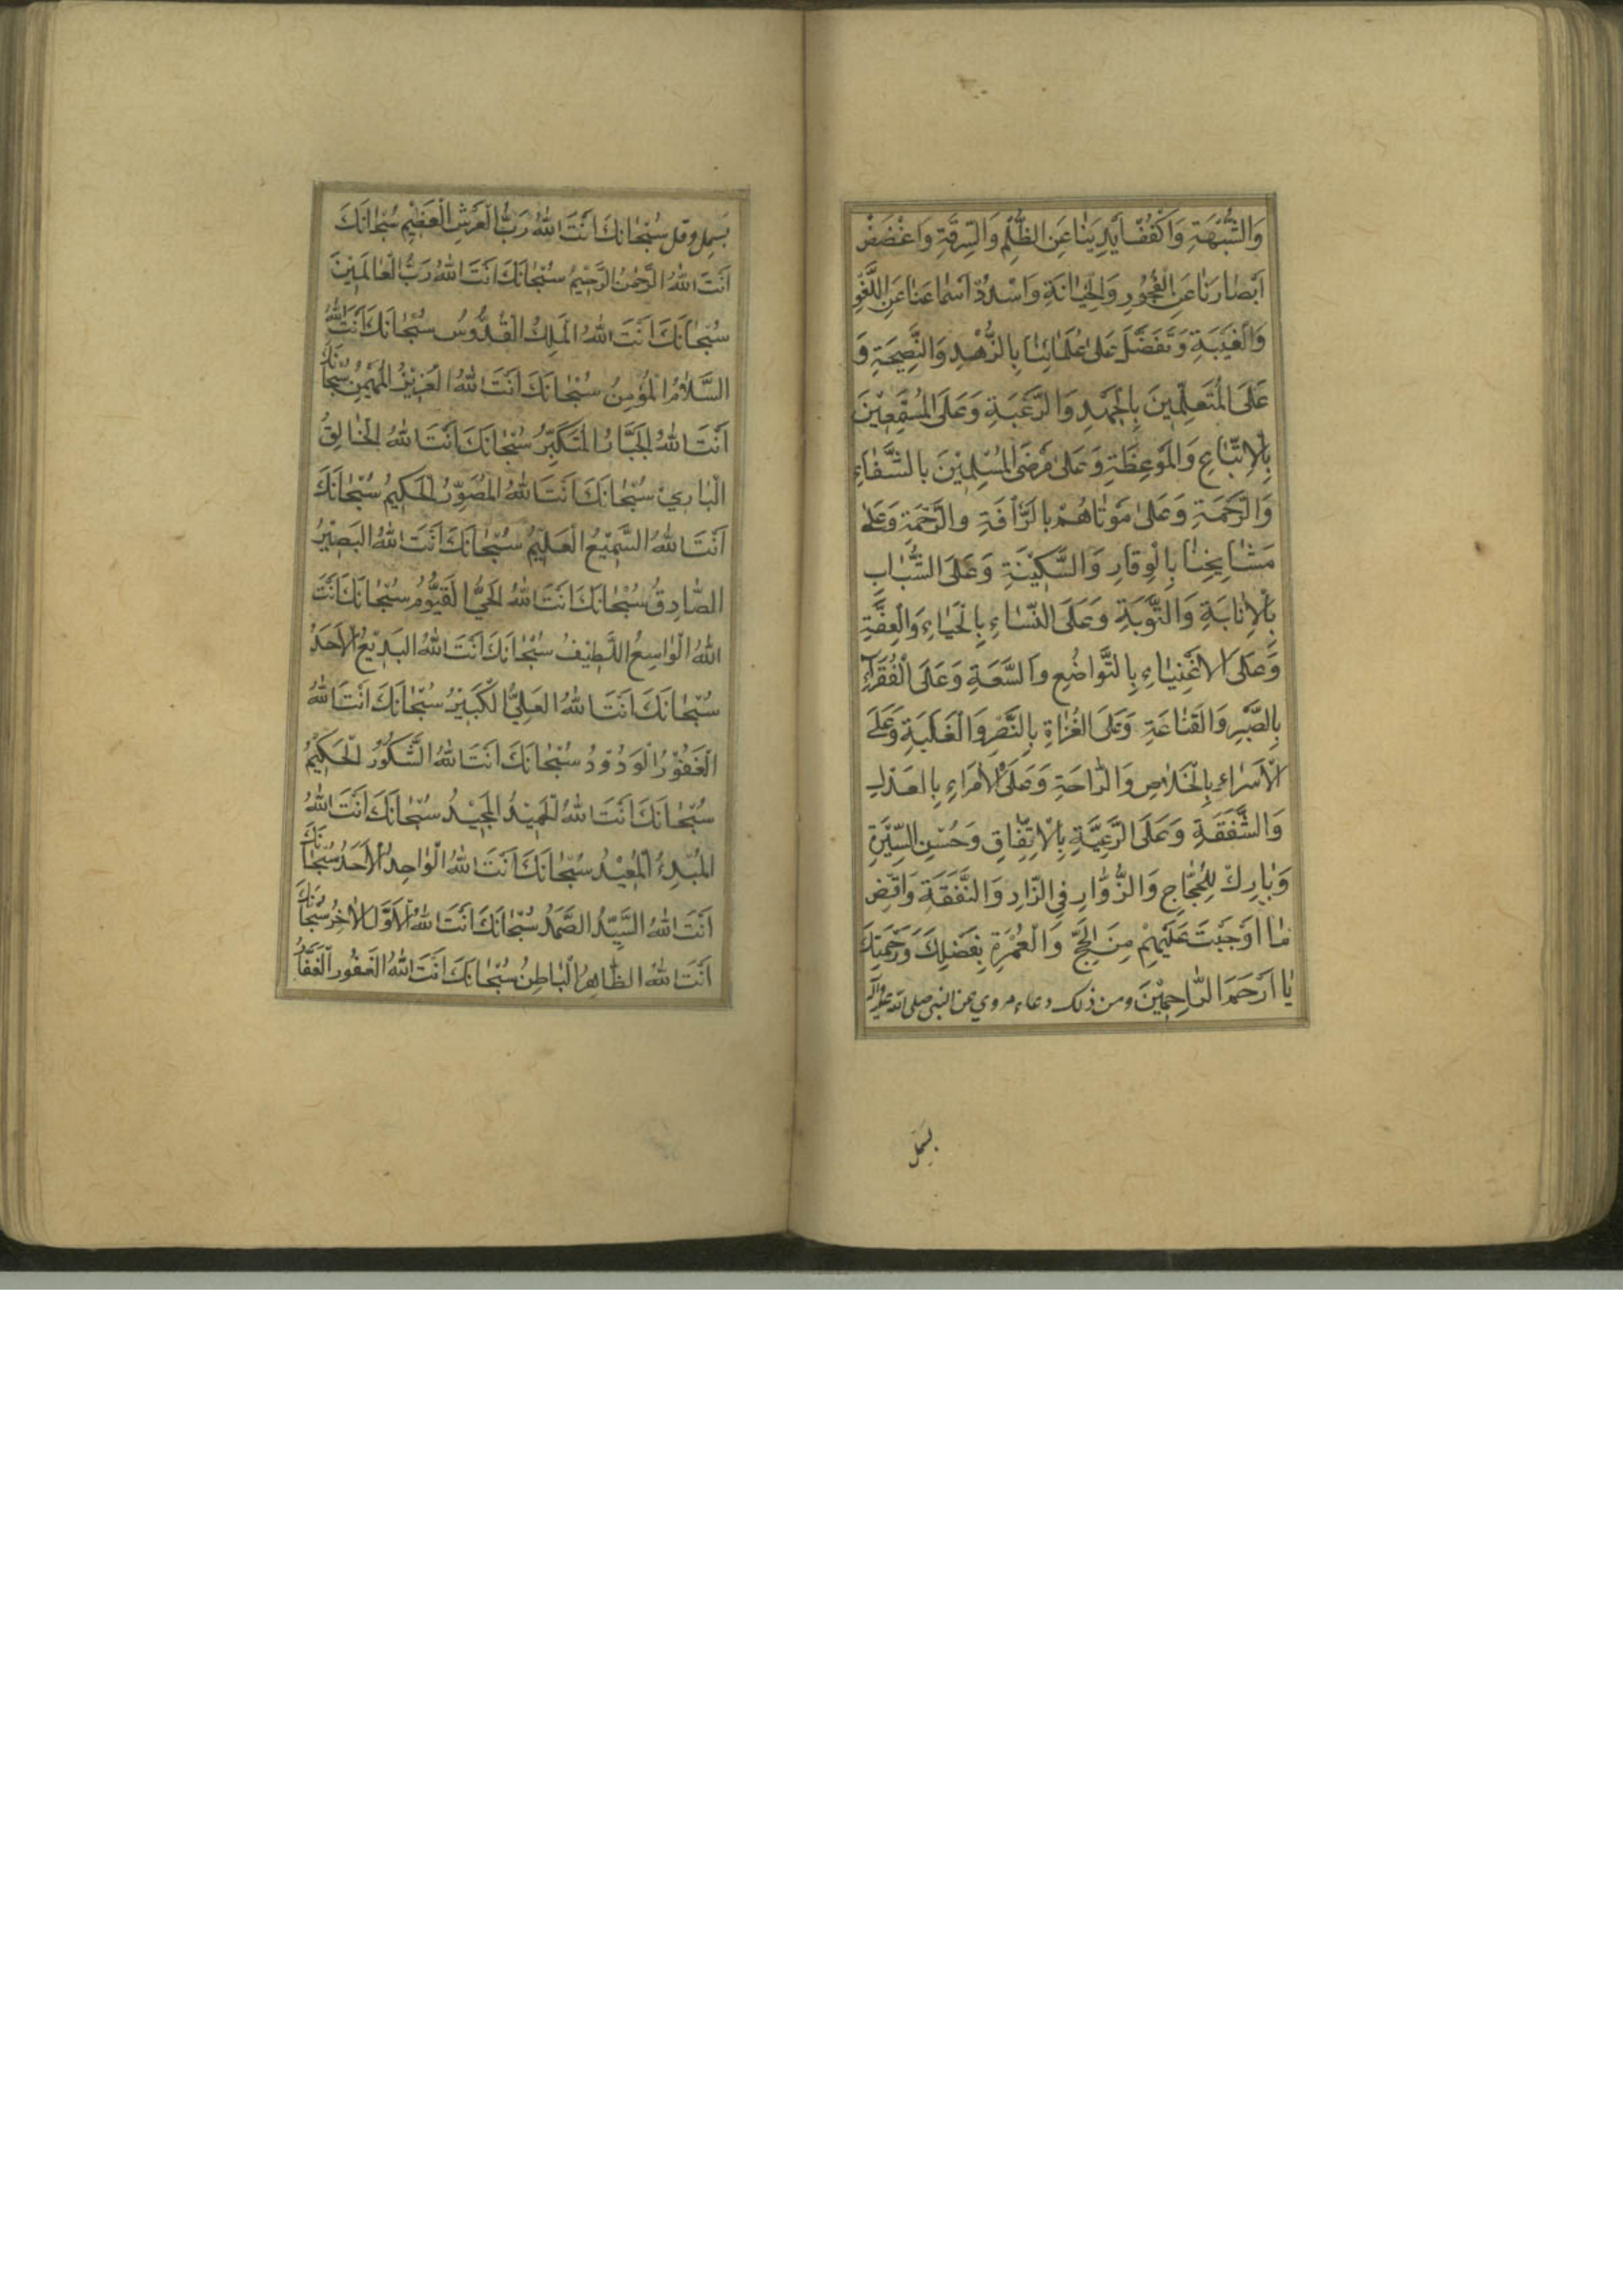 وَالشُّبْهَةِ وَاكْفُفْ اَيْدِيَنٰا عَنِ الظُّلْمِ وَالسِّرِقَةِ وَاغْضُضْ
اَبْصٰارَنٰا عَنِ الْفُجُورِ وَالْخِيٰانَةِ وَاسْدُدْ اَسْمٰاعَنٰا عَنِ اللَّغْوِ
وَالْغَيْبَةِ وَتَفَضَّلْ عَلىٰ عُلَمٰائِنٰا بِالزُّهْدِ وَالنَّصِيحَةِ وَ
عَلَى الْمُتَعَلِّمِينَ بِالْجَهْدِ وَالرَّغْبَةِ وَعَلَى الْمُسْتَمِعِيْنَ
بِالْاِتِّبٰاعِ وَالْمَوْعِظَةِ وَعَلىٰ مَرْضَى الْمُسْلِمِيْنَ بِالشَّفٰاءِ
وَالرَّحْمَةِ وَعَلىٰ مَوْتٰاهُمْ بِالرَّأْفَةِ وَالرَّحْمَةِ وَعَلىٰ
مَشٰايِخِنٰا بِالْوِقٰارِ وَالسَّكِيْنَةِ وَعَلَى الشُّبّٰابِ
بِالْاِنٰابَةِ وَالتَّوْبَةِ وَعَلَى النِّسٰاءِ بِالْحَيٰاءِ وَالْعِفَّةِ
وَعَلَى الْاَغْنِيٰاءِ بِالتَّوٰاضُعِ وَالسَّعَةِ وَعَلَى الْفُقَرٰاءِ
بِالصَّبْرِ وَالْقَنٰاعَةِ وَعَلَى الْغُزٰاةِ بِالنَّصْرِ وَالْغَلَبَةِ وَعَلَى
الْاُسَرٰاءِ بِالْخَلٰاصِ وَالرّٰاحَةِ وَعَلَى الْاُمَرٰاءِ بِالْعَدْلِ
وَالشَّفَقَةِ وَعَلَى الرَّعِيَّةِ بِالْاِتِّفٰاقِ وَحُسْنِ السِّيْرَةِ
وَبٰارِكْ لِلْحُجّٰاجِ وَالزُّوّٰارِ فِى الزّٰادِ وَالنَّفَقَةِ وَاقْضِ
مٰا اَوْجَبْتَ عَلَيْهِمْ مِنَ الْحَجِّ وَالْعُمْرَةِ بِفَضْلِكَ وَرَحْمَتِكَ
يٰا اَرْحَمَ الرّٰاحِمِيْنَ ومن ذلك دعاء مروي عن النبى صلى الله عليه وآله
بسمل
بَسْمِل وقل سُبْحٰانَكَ اَنْتَ اللهُ رَبُّ الْعَرْشِ الْعَظِيْمِ سُبْحٰانَكَ
اَنْتَ اللهُ الرَّحْمٰنُ الرَّحِيْمُ سُبْحٰانَكَ اَنْتَ اللهُ رَبُّ الْعٰالَمِيْنَ
سُبْحٰانَكَ اَنْتَ اللهُ الْمَلِكُ الْقُدُّوسُ سُبْحٰانَكَ اَنْتَ اللهُ
السَّلٰامُ الْمُؤْمِنُ سُبْحٰانَكَ اَنْتَ اللهُ الْعَزِيْزُ الْمُهَيْمِنُ سُبْحٰانَكَ
اَنْتَ اللهُ الْجَبّٰارُ الْمُتَكَبِّرُ سُبْحٰانَكَ اَنْتَ اللهُ الْخٰالِقُ
الْبٰارِئُ سُبْحٰانَكَ اَنْتَ اللهُ الْمُصَوِّرُ الْحَكِيمُ سُبْحٰانَكَ
اَنْتَ اللهُ السَّمِيْعُ الْعَلِيْمُ سُبْحٰانَكَ اَنْتَ اللهُ الْبَصِيْرُ
الصّٰادِقُ سُبْحٰانَكَ اَنْتَ اللهُ الْحَيُّ الْقَيُّوْمُ سُبْحٰانَكَ اَنْتَ
اللهُ الْوٰاسِعُ اللَّطِيْفُ سُبْحٰانَكَ اَنْتَ اللهُ الْبَدِيْعُ الْاَحَدُ
سُبْحٰانَكَ اَنْتَ اللهُ الْعَلِيُّ الْكَبِيْرُ سُبْحٰانَكَ اَنْتَ اللهُ
الْغَفُوْرُ الْوَدُوْدُ سُبْحٰانَكَ اَنْتَ اللهُ الشَّكُوْرُ الْحَكِيْمُ
سُبْحٰانَكَ اَنْتَ اللهُ الْحَمِيْدُ الْمَجِيْدُ سُبْحٰانَكَ اَنْتَ اللهُ
الْمُبْدِءُ الْمُعِيْدُ سُبْحٰانَكَ اَنْتَ اللهُ الْوٰاحِدُ الْاَحَدُ سُبْحٰانَكَ
اَنْتَ اللهُ السَّيِّدُ الصَّمَدُ سُبْحٰانَكَ اَنْتَ اللهُ الْاَوَّلُ الْاٰخِرُ سُبْحٰانَكَ
اَنْتَ اللهُ الظّٰاهِرُ الْبٰاطِنُ سُبْحٰانَكَ اَنْتَ اللهُ الْغَفُورُ الْغَفّٰارُ